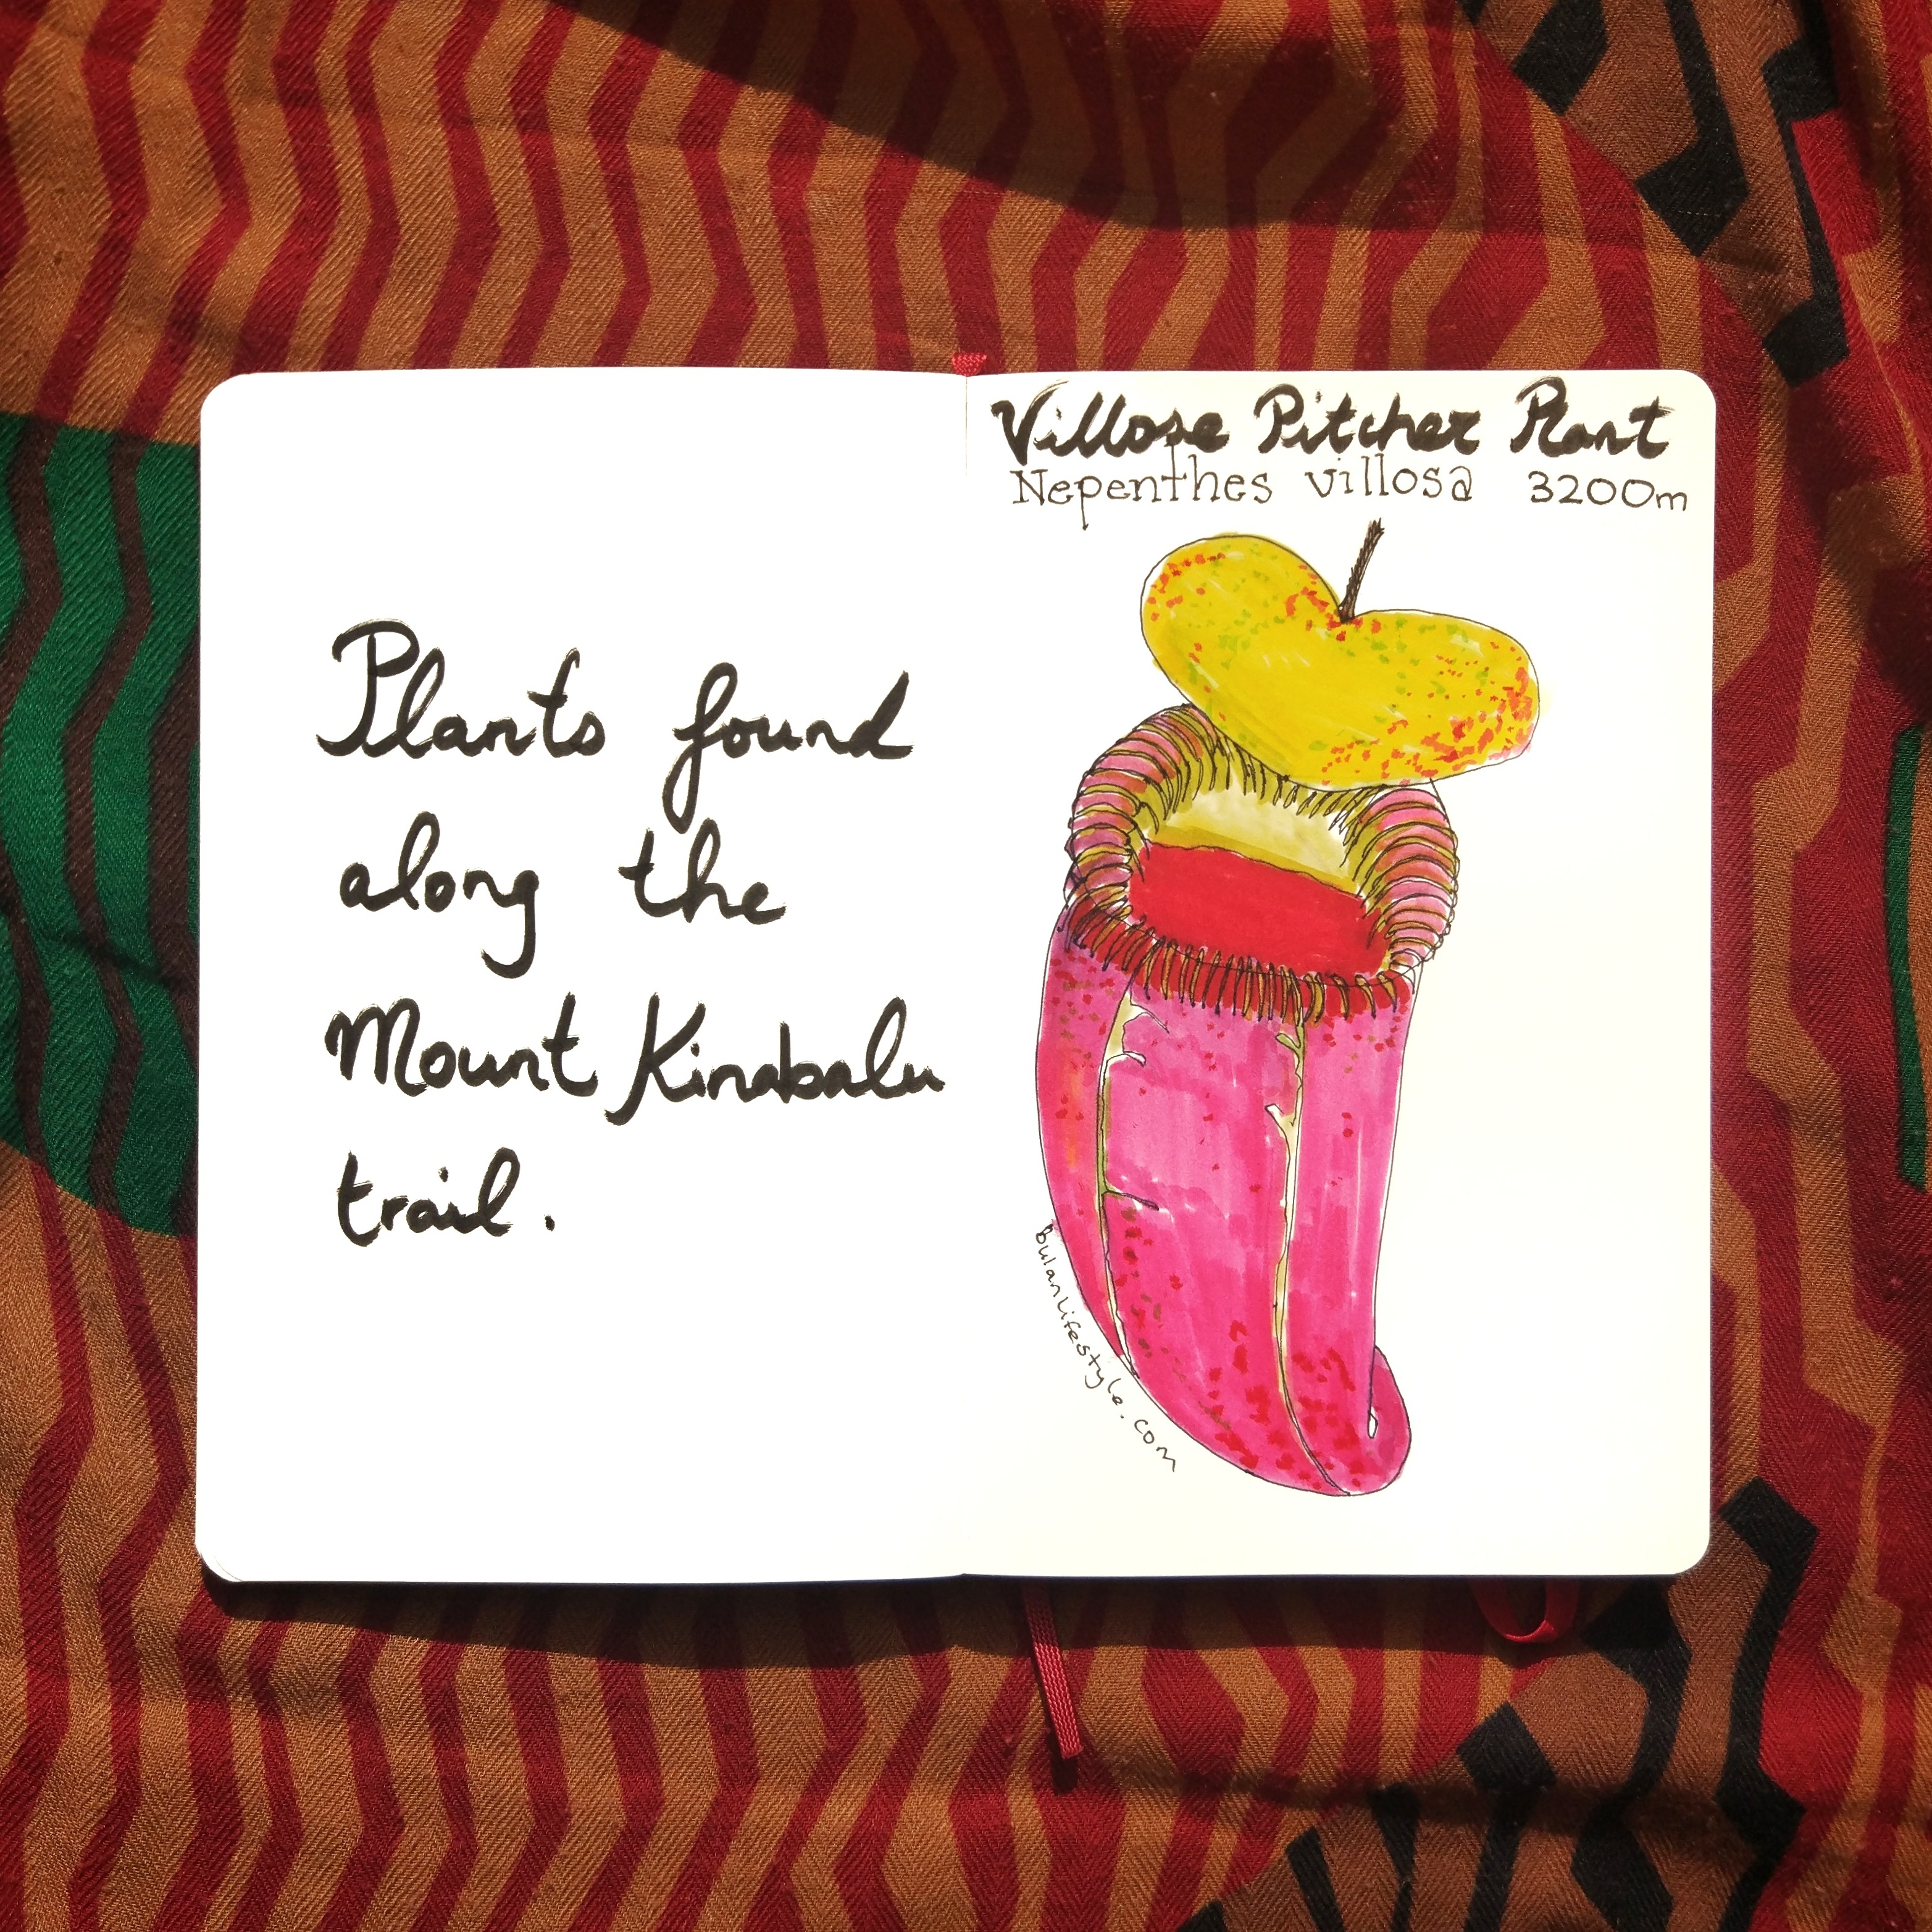 Plants found
along the
Mount Kinabalu
trail.
Villose Pitcher Plant
Nepenthes villosa 3200m
bulanlifestyle.com